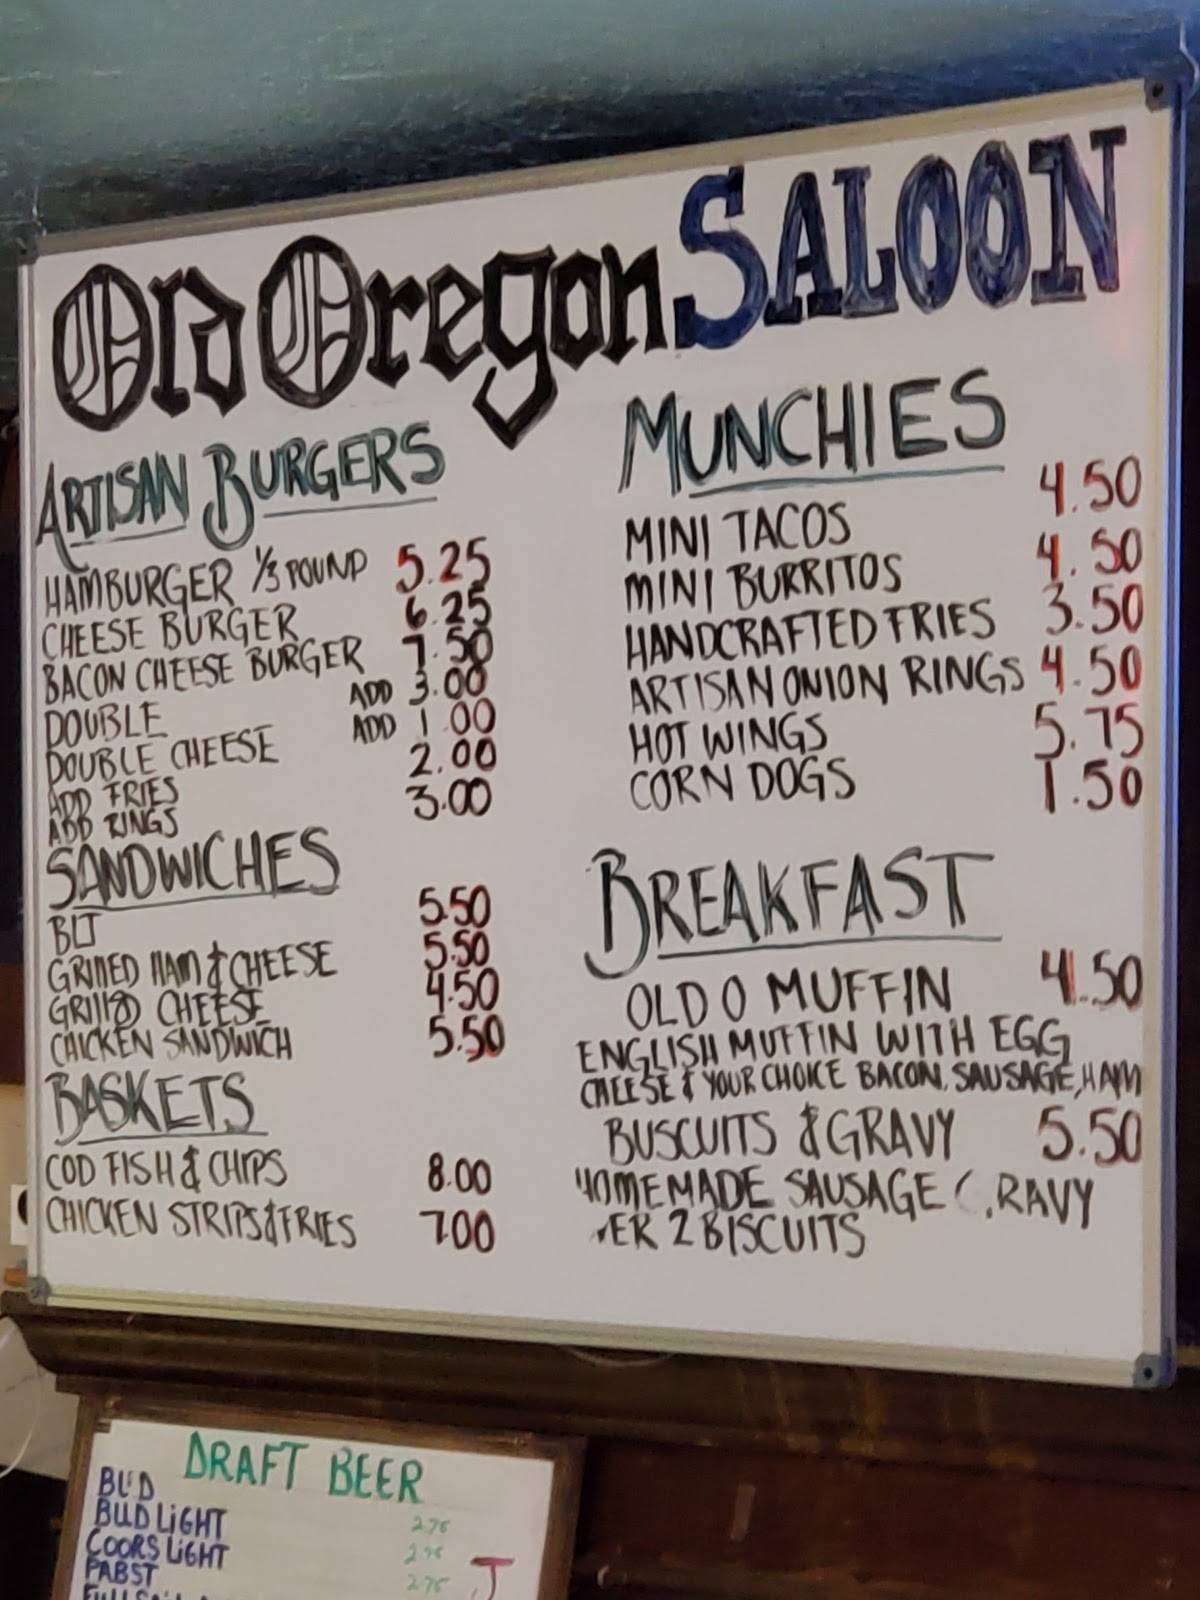 Old Oregon SALOON
ARTISAN BURGERS
HAMBURGER 1/3 POUND 5.25
CHEESE BURGER 6.25
BACON CHEESE BURGER 7.50
DOUBLE ADD 3.00
DOUBLE CHEESE ADD 1.00
ADD FRIES 2.00
ADD RINGS 3.00
SANDWICHES
BLT 5.50
GRILLED HAM & CHEESE 5.50
GRILLED CHEESE 4.50
CHICKEN SANDWICH 5.50
BASKETS
COD FISH & CHIPS 8.00
CHICKEN STRIPS & FRIES 7.00
MUNCHIES
MINI TACOS 4.50
MINI BURRITOS 4.50
HANDCRAFTED FRIES 3.50
ARTISAN ONION RINGS 4.50
HOT WINGS 5.75
CORN DOGS 1.50
BREAKFAST
OLD O MUFFIN 4.50
ENGLISH MUFFIN WITH EGG
CHEESE & YOUR CHOICE BACON, SAUSAGE, HAM
BUSCUITS & GRAVY 5.50
HOMEMADE SAUSAGE GRAVY
VER 2 BISCUITS
DRAFT BEER
BUD
BUD LIGHT 2.75
COORS LIGHT 2.75
PABST 2.75